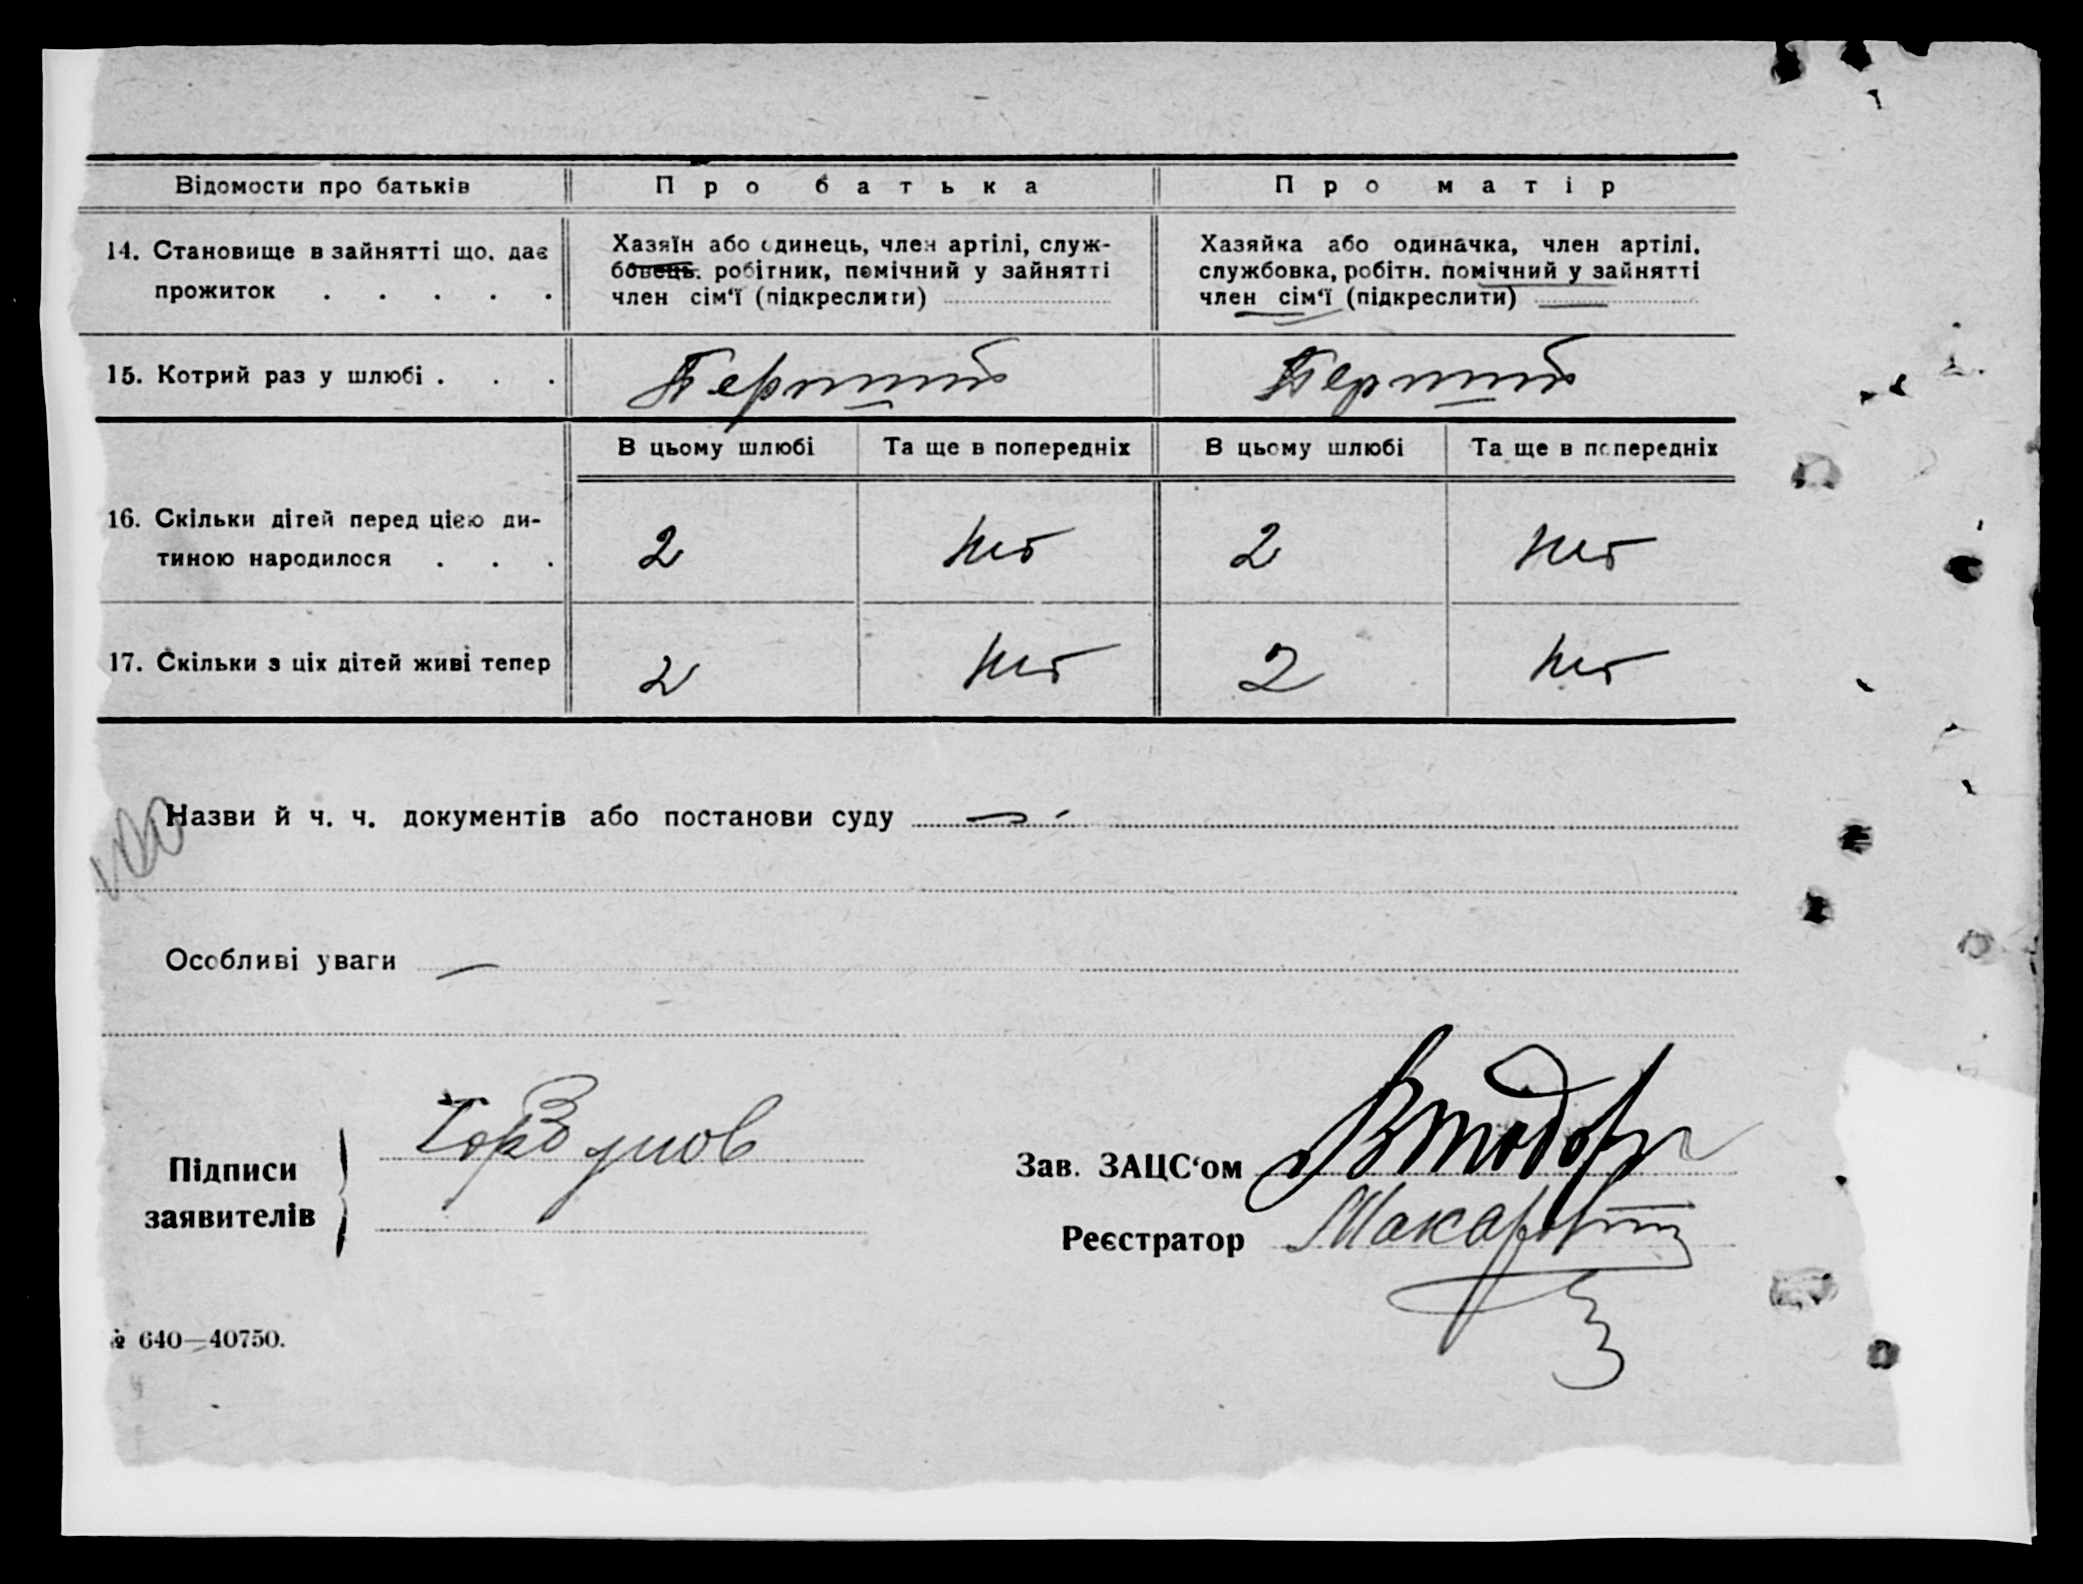 Відомости про батьків Про батька Про матір
14. Становище в зайнятті що, дає
прожиток . . . . .
Хазяїн або єдинець, член артілі, служ-
бовець, робітник, помічний у зайнятті
член сім'ї (підкреслити)
Хазяйка або одиначка, член артілі,
службовка, робітн. помічний у зайнятті
член сім'ї (підкреслити)
15. Котрий раз у шлюбі . . . Перший Перший
В цьому шлюбі Та ще в попередніх В цьому шлюбі Та ще в попередніх
16. Скільки дітей перед цією ди-
тиною народилося . . .
2 нет 2 нет
17. Скільки з ціх дітей живі тепер 2 нет 2 нет
Назви й ч. ч. документів або постанови суду —
Особливі уваги —
Підписи
заявителів
Зав. ЗАЦС'ом
Реєстратор
№ 640—40750.